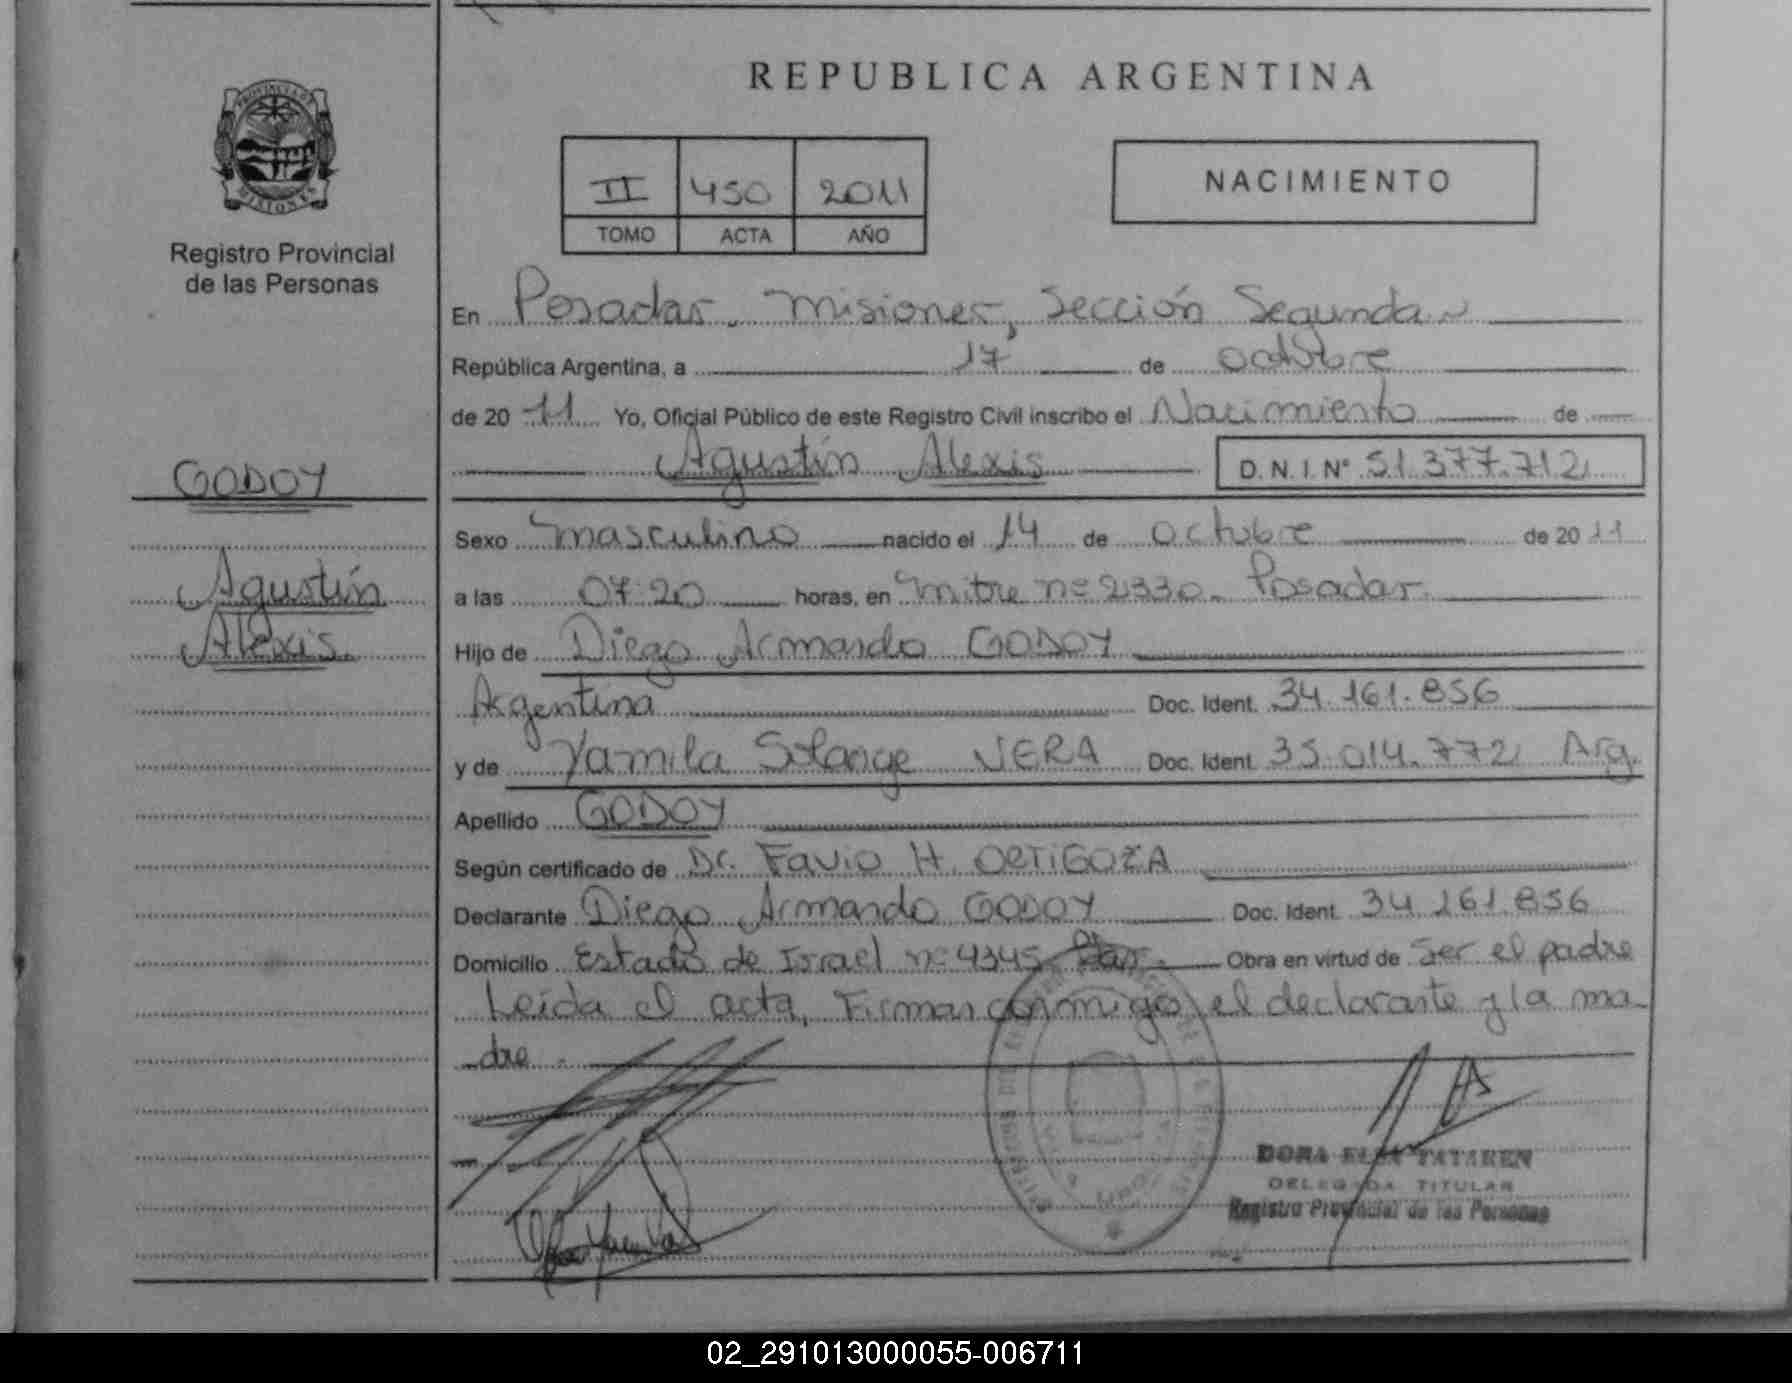 REPUBLICA ARGENTINA
PROVINCIA DE
MISIONES
Registro Provincial
de las Personas
II 450 2011
TOMO ACTA AÑO
NACIMIENTO
En Posadas. Misiones, Sección Segunda
República Argentina, a 17 de octubre
de 2011 Yo, Oficial Público de este Registro Civil inscribo el Nacimiento de
Agustín Alexis D.N.I. Nº 51.377.712
GODOY
Agustín
Alexis
Sexo masculino nacido el 14 de octubre de 2011
a las 07:20 horas, en mitre nº 2330. Posadas.
Hijo de Diego Armando GODOY
Argentina Doc. Ident. 34.161.856
y de Yamila Solange VERA Doc. Ident. 35.014.772 Arg.
Apellido GODOY
Según certificado de Dr. Favio H. ORTIGOZA
Declarante Diego Armando GODOY Doc. Ident. 34.161.856
Domicilio Estado de Israel nº 4345 Obra en virtud de ser el padre
Leída el acta, Firman conmigo el declarante y la ma-
dre.
DORA ELSA TATAREN
DELEGADA TITULAR
Registro Provincial de las Personas
02_291013000055-006711